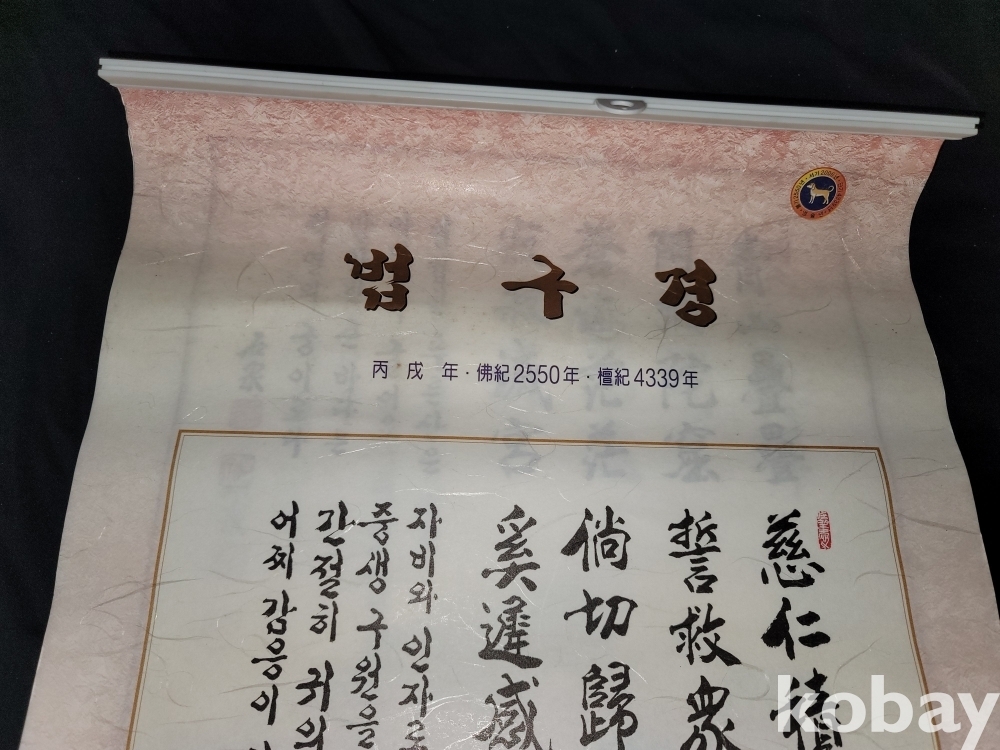 법구경
丙戌年·佛紀2550年·檀紀4339年
慈仁積
誓救衆
倘切歸
奚遲感
자비와 인자로
중생 구원을
간절히 귀의
어찌 감응이
kobay